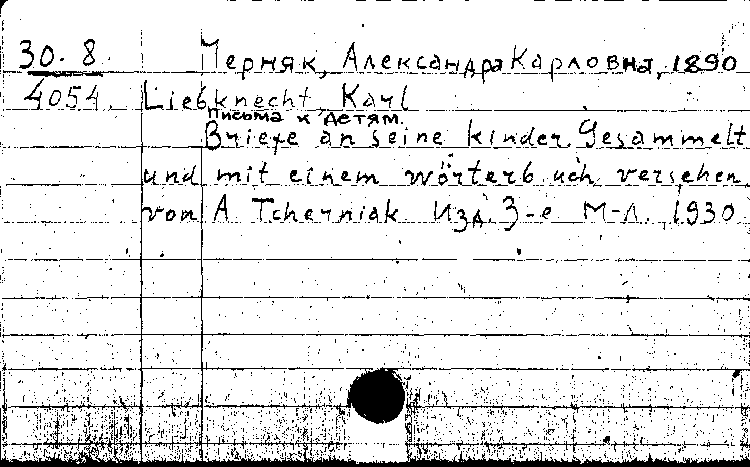 30.8 Черняк, Александра Карловна, 1890
4054. Liebknecht Karl
Письма к детям.
Briefe an seine kinder. Gesammelt
und mit einem wörterbuch versehen
von A Tcherniak Изд. 3-е М-Л. 1930